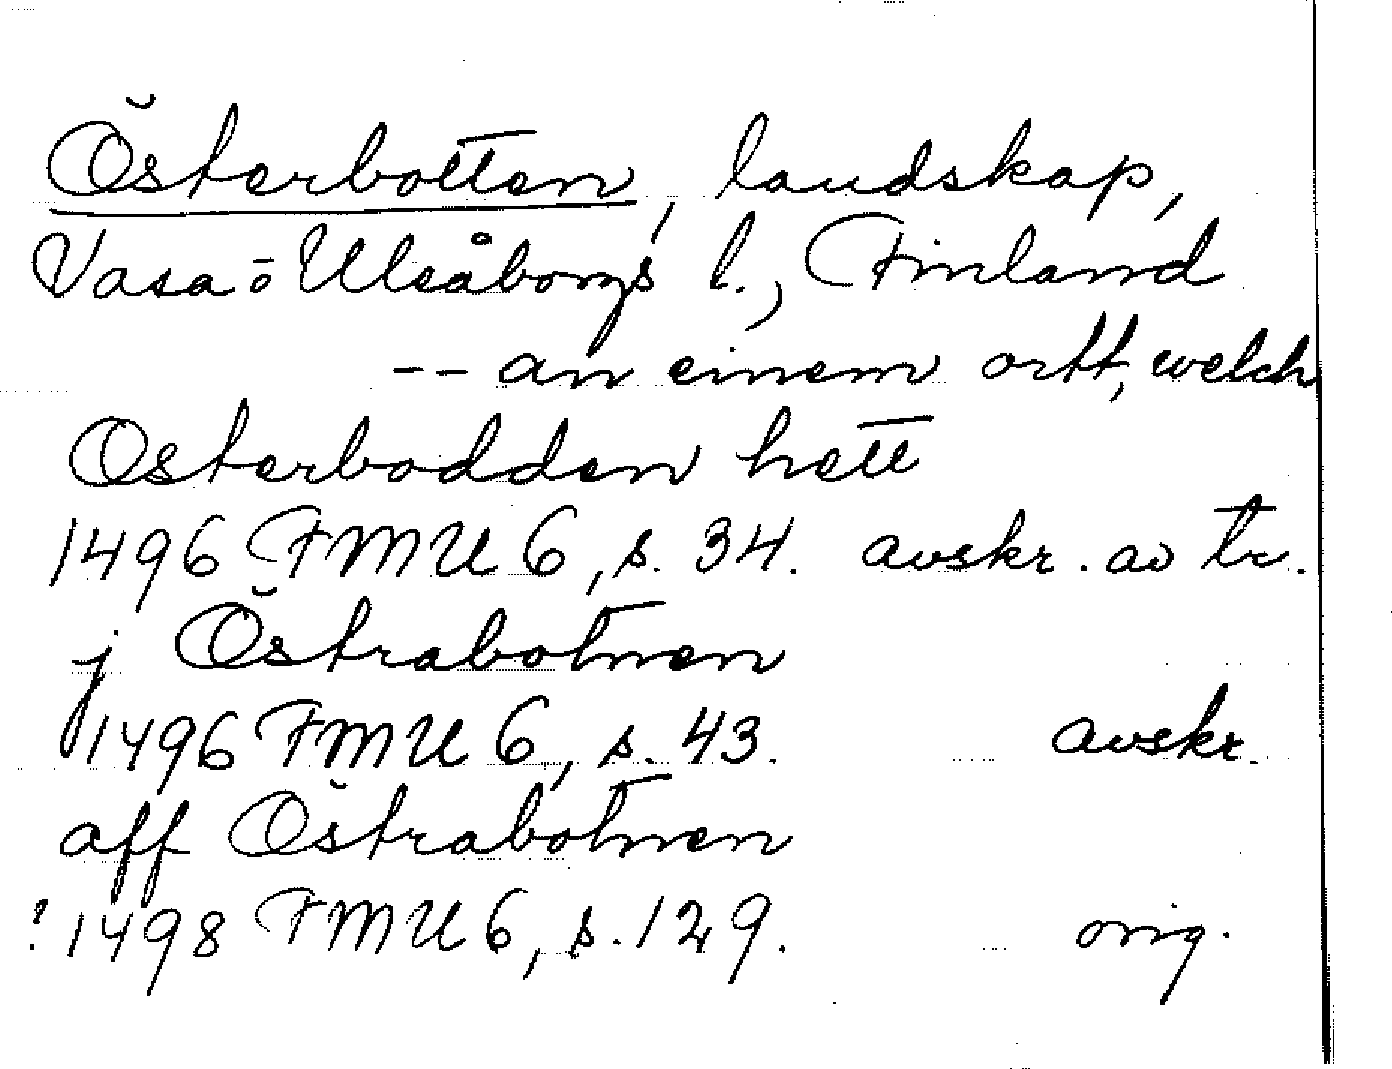 Österbotten, landskap,
Vasa- o Uleåborgs l., Finland
-- an einem ortt, welch
Osterbodden hett
1496 FMU 6, s. 34. avskr. av tr.
j Östrabotnen
1496 FMU 6, s. 43. avskr.
aff Östrabotnen
? 1498 FMU 6, s. 129. orig.